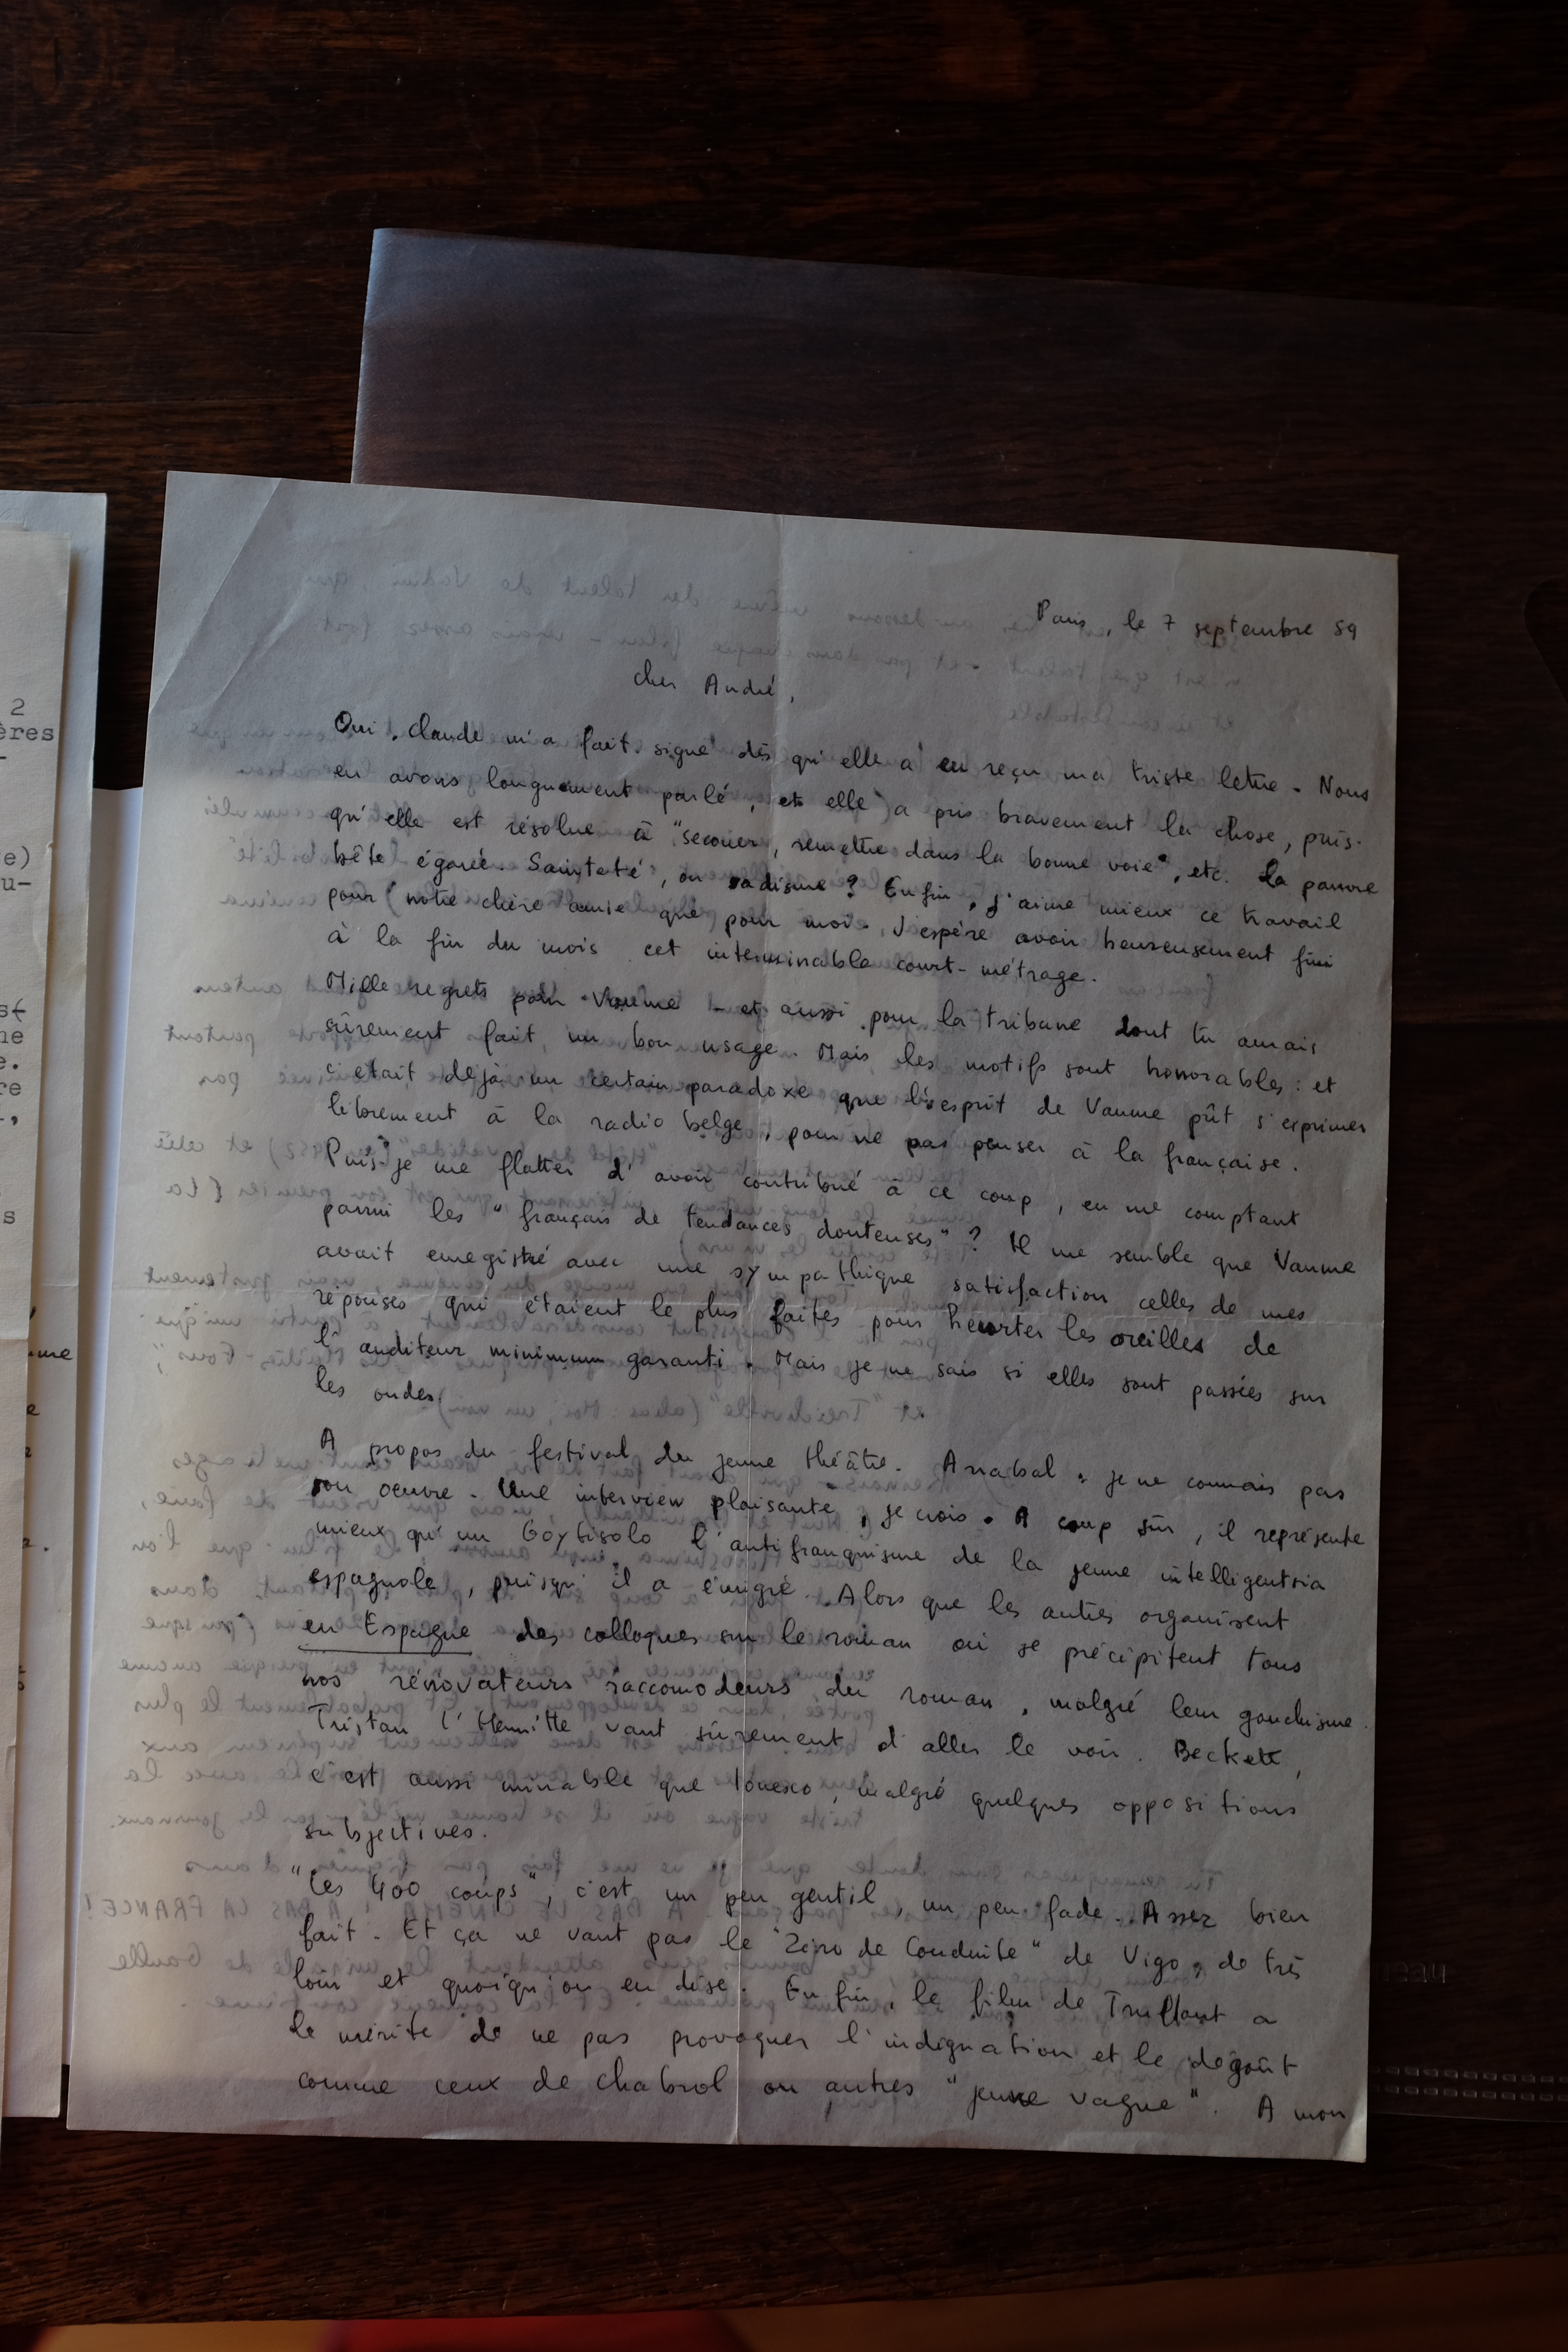 2
ères
-
e)
u-
ne
e.
re
-,
s
me
e
Paris, le 7 septembre 59
cher André,
Oui, Claude m'a fait signe dès qu'elle a eu reçu ma triste lettre. Nous
en avons longuement parlé, et elle a pris bravement la chose, puis-
qu'elle est résolue à "secouer, remettre dans la bonne voie", etc. la pauvre
bête égarée. Sainteté, ou sadisme ? Enfin, j'aime mieux ce travail
pour notre chère amie que pour moi. J'espère avoir heureusement fini
à la fin du mois cet interminable court-métrage.
Mille regrets pour Vaume - et aussi pour la tribune dont tu aurais
sûrement fait un bon usage. Mais les motifs sont honorables : et
c'était déjà un certain paradoxe que l'esprit de Vaume pût s'exprimer
librement à la radio belge, pour ne pas penser à la française.
Puis-je me flatter d'avoir contribué à ce coup, en me comptant
parmi les "français de tendances douteuses" ? Il me semble que Vaume
avait enregistré avec une sympathique satisfaction celles de mes
réponses qui étaient le plus faites pour heurter les oreilles de
l'auditeur minimum garanti. Mais je ne sais si elles sont passées sur
les ondes.
A propos du festival du jeune théâtre. Arrabal : je ne connais pas
son oeuvre. Une interview plaisante, je crois. A coup sûr, il représente
mieux qu'un Goytisolo l'antifranquisme de la jeune intelligentsia
espagnole, puisqu'il a émigré. Alors que les autres organisent
en Espagne des colloques sur le roman où se précipitent tous
nos rénovateurs raccomodeurs du roman, malgré leur gauchisme.
Tristan l'Hermitte vaut sûrement d'aller le voir. Beckett,
c'est aussi minable que Ionesco, malgré quelques oppositions
subjectives.
"Les 400 coups", c'est un peu gentil, un peu fade. Assez bien
fait. Et ça ne vaut pas le "Zéro de Conduite" de Vigo, de très
loin et quoiqu'on en dise. Enfin, le film de Truffaut a
le mérite de ne pas provoquer l'indignation et le dégoût
comme ceux de Chabrol ou autres "jeune vague". A mon